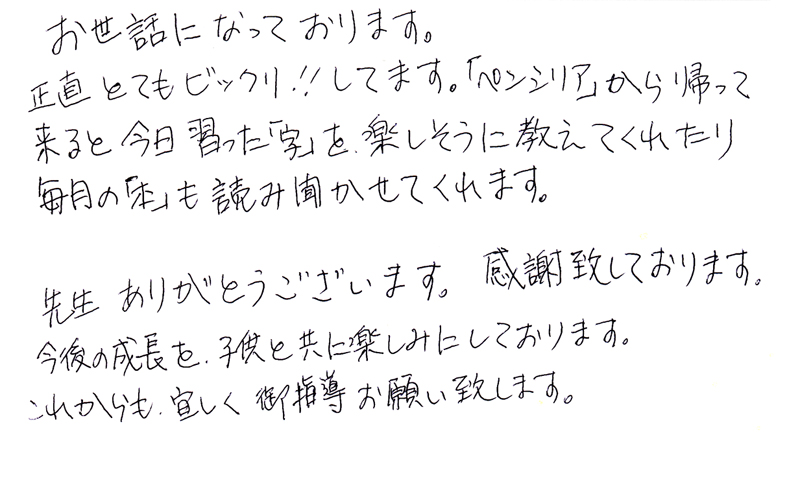 お世話になっております。
正直とてもビックリ!!してます。「ペンシリア」から帰って
来ると今日習った「字」を、楽しそうに教えてくれたり
毎月の「本」も読み聞かせてくれます。
先生 ありがとうございます。 感謝致しております。
今後の成長を、子供と共に楽しみにしております。
これからも、宜しく御指導お願い致します。